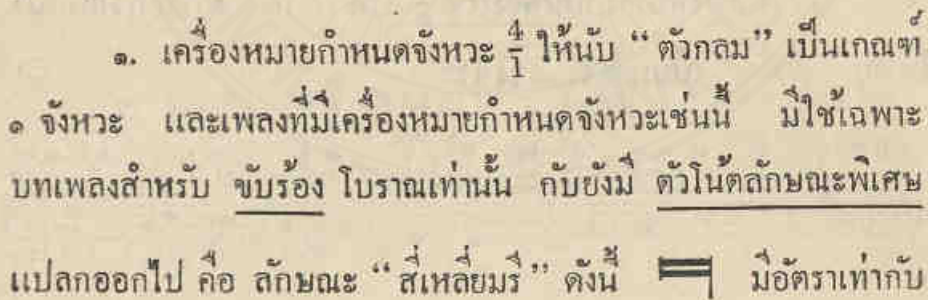 ๑. เครื่องหมายกำหนดจังหวะ 4/1 ให้นับ “ ตัวกลม” เป็นเกณฑ์
๑ จังหวะ และเพลงที่มีเครื่องหมายกำหนดจังหวะเช่นนี้ มีใช้เฉพาะ
บทเพลงสำหรับ ขับร้อง โบราณเท่านั้น กับยังมี ตัวโน้ตลักษณะพิเศษ
แปลกออกไป คือ ลักษณะ “ สี่เหลี่ยมรี” ดังนี้ มีอัตราเท่ากับ